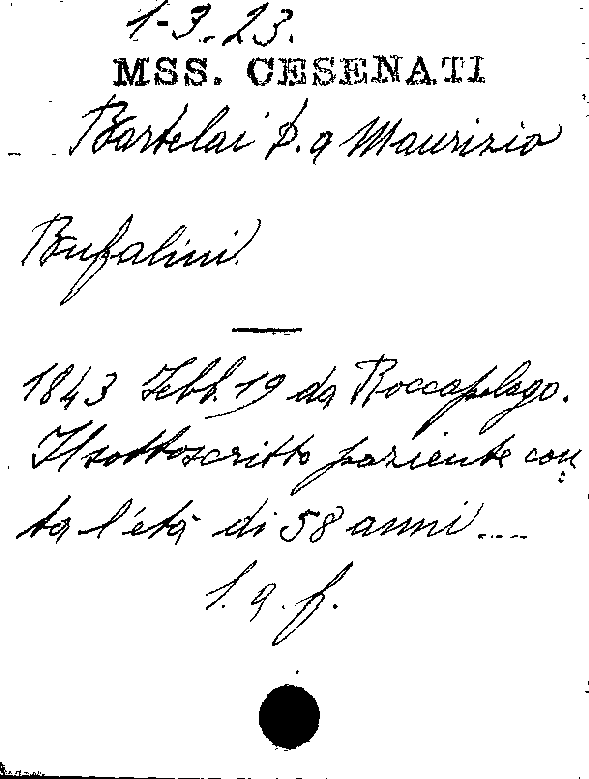 1-3.23.
MSS. CESENATI
Bartelai D. a Maurizio
Bufalini
1843 Febb. 19 da Roccapelago.
Il sottoscritto paziente con
ta l'età di 58 anni ....
l. a. f.